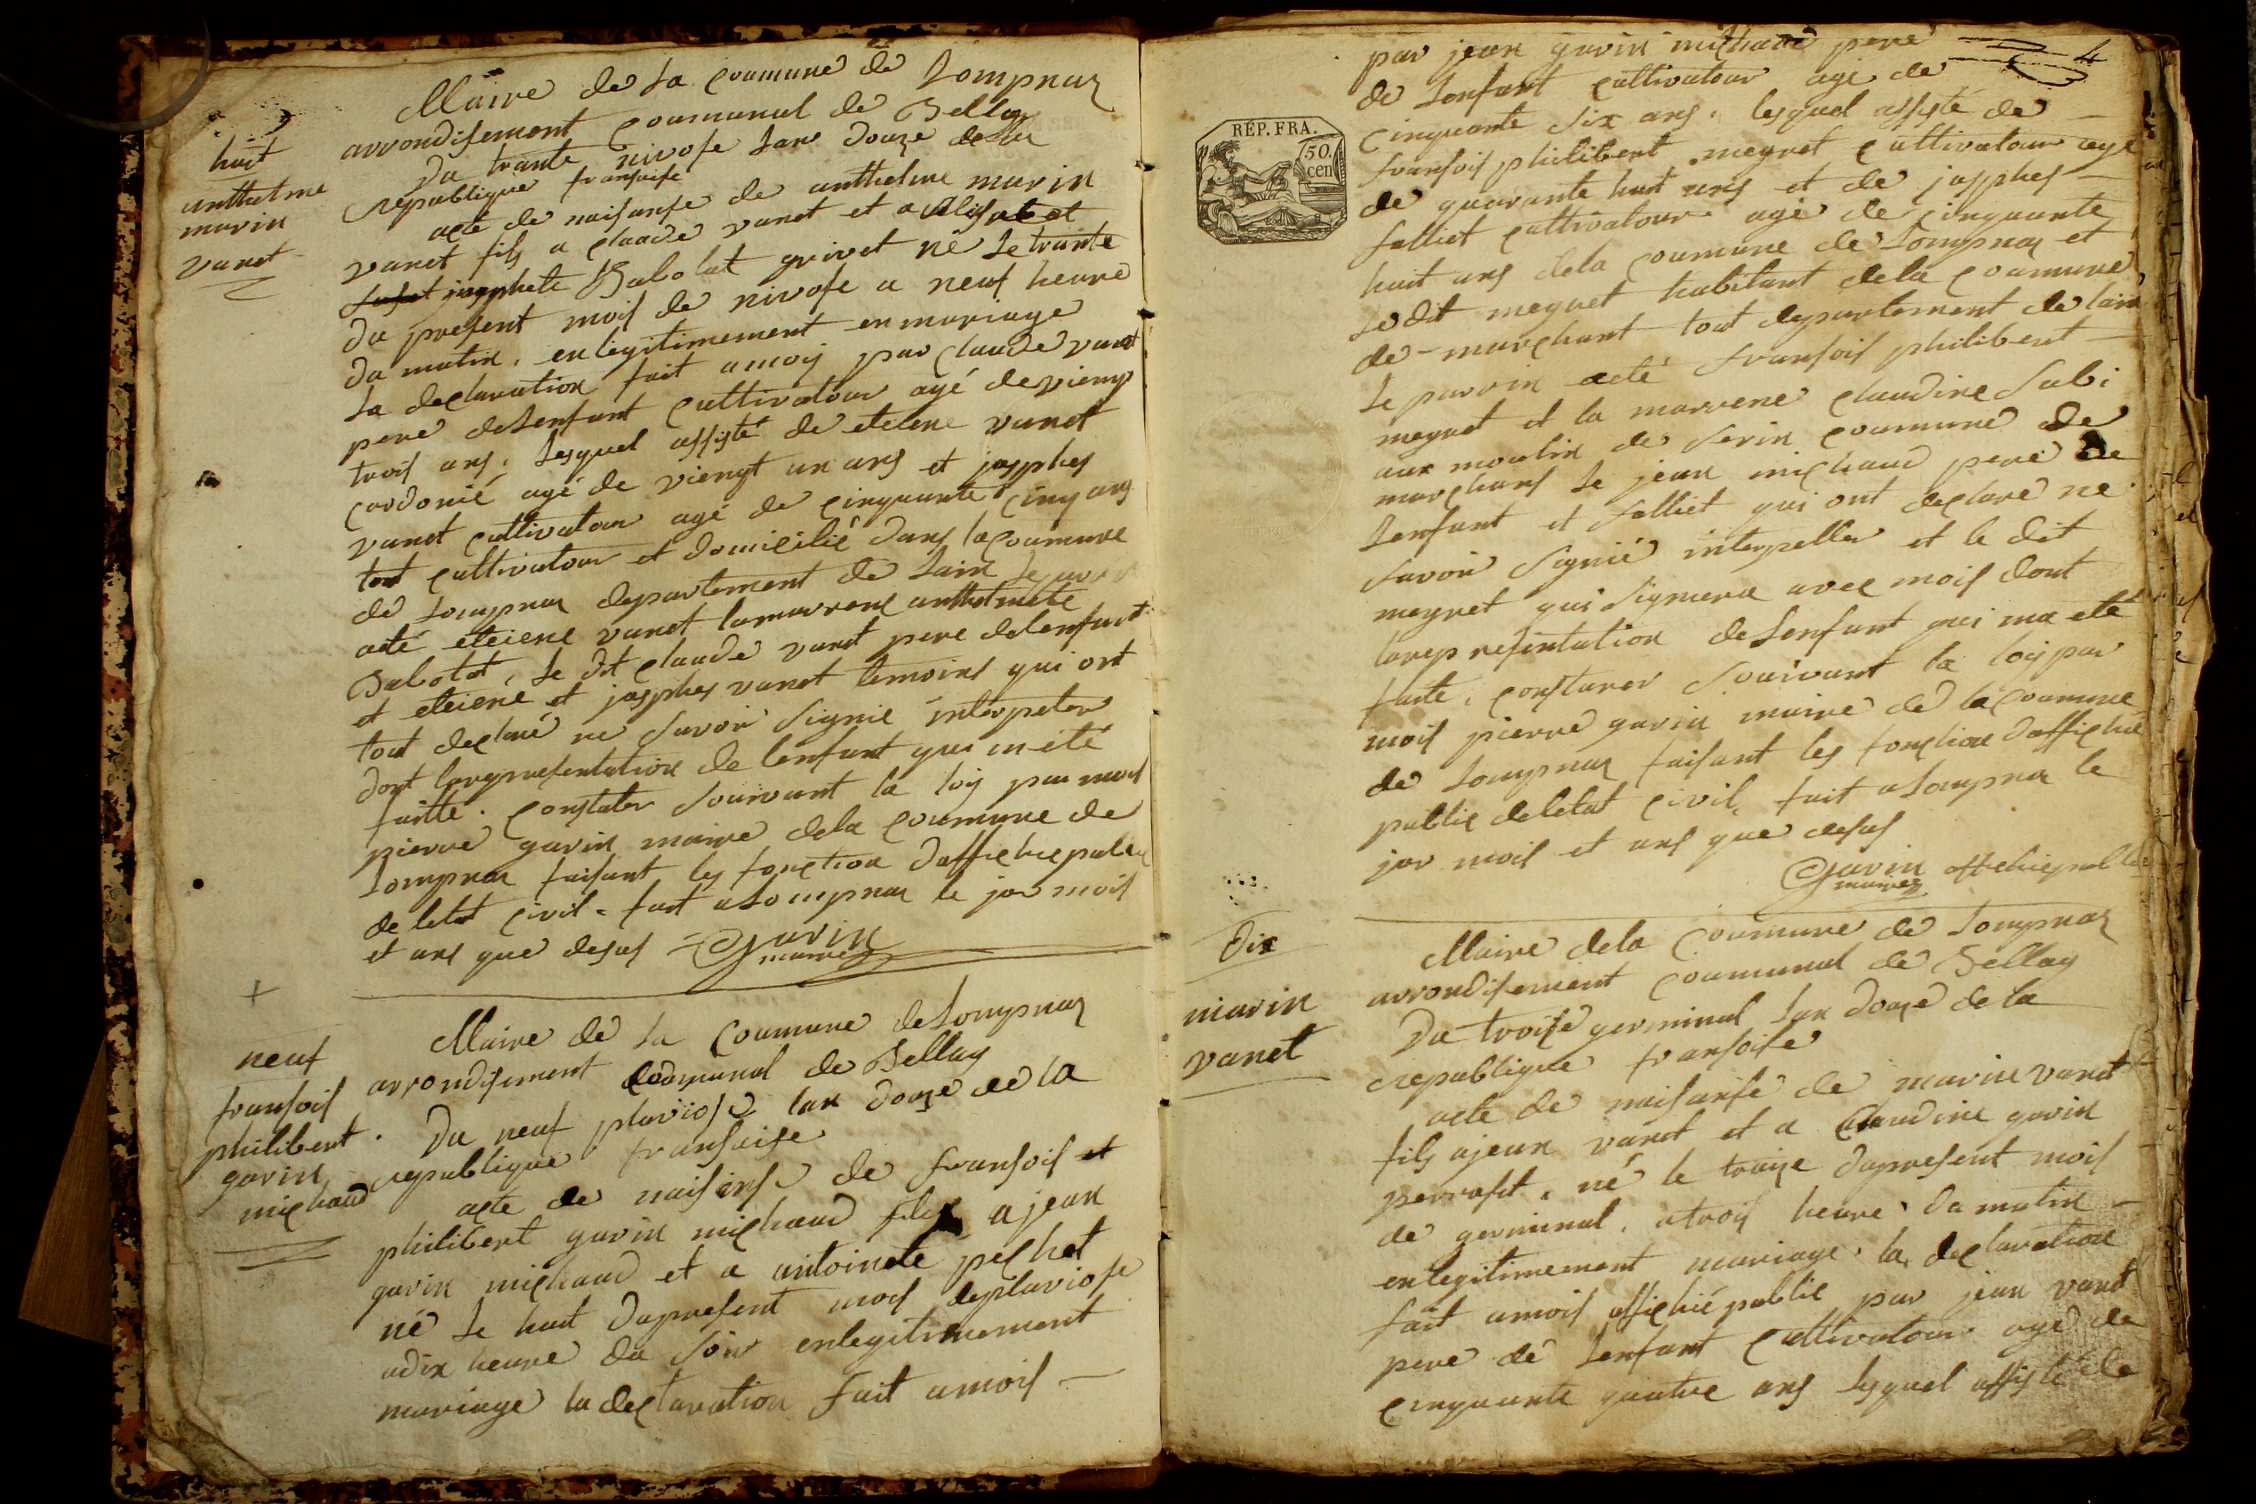 Maire de la Coumune de Lompnaz
arrondisement Coumunal de Bellay
huit
Du trante nivose lan douze de la
republique fransaise
anthelme
marin
vanet
acte de naisanse de anthelme marin
vanet fils a claude vanet et a
josephete Babolat grivet né le trante
du present mois de nivose a neuf heure
du matin, enlegitimement en mariage
la declaration fait a moy par claude vanet
pere delenfant cultivatour agé de viengt
trois ans, lesquel assisté de eteiene vanet
cordonié agé de viengt un ans et josephes
vanet cultivatour agé de cinquante cinq ans
tout cultivatour et domicilié dans la coumune
de Lompnaz departement de lain le parin
acté eteiene vanet lamarrene anthelmete
Babolat, le dit claude vanet pere delenfant
et eteiene et josephes vanet temoins qui ont
tout declaré ne savoir signié interpeler
dont larepresentation de lenfant qui m eté
faitte. constater souivant la loy par mois
pierre gavin maire dela coumune de
Lompnaz faisant les fonction dofficie public
de letat civil = fait a Lompnaz le jor mois
et ans que desus = Gavin
maire
+
Maire de la Coumune de Lompnaz
neuf
arrondisement Coumunal de Bellay
fransois
philibert
gavin
michaud
Du neuf pluviose lan douze de la
republique fransaise
acte de naisanse de fransois et
philibert gavin michaud fils a jean
gavin michaud et a antoinete pechet
né le huit dupresent mois depluviose
adix heure du soir enlegitimement
mariage la declaration fait a mois —
4
par jean gavin michaud pere
de lenfant cultivatour agé de
cinquante six ans, lesquel assisté de
RÉP. FRA.
50.
cen
fransois philibert meynet cultivatour agé
de quarante huit ans et de josephes
folliet cultivatour agé de cinquante
huit ans dela coumune de Lompnaz et
le dit meynet habitant dela coumune
de marchant tout departement de lain
le parrin acté fransois philibert
meynet et la marrene claudine Sabi
aux moulin de serin coumune de
marchans le jean michaud pere de
lenfant et folliet qui ont declaré ne
savoir signié interpeller et le dit
meynet qui signera avec mois dont
larepresentation de lenfant qui ma eté
faite, constaner souivant la loy par
mois pierre gavin maire de la coumune
de Lompnaz faisant les fonction dofficie
public deletat civil, fait a Lompnaz le
jor mois et ans que desus
Gavin officiepublic
maire
Dix
Maire dela Coumune de Lompnaz
arrondisement Coumunal de Bellay
marin
vanet
Du troize germinal lan douze de la
republique fransoise
acte de naisanse de marin vanet
fils ajean vanet et a Claudine gavin
perraset, né le traize dupresent mois
de germinal, atrois heure du matin —
enlegitimement mariage, la declaration
fait amois officié public par jean vanet
pere de lenfant cultivatour agé de
cinquante quatre ans lesquel assisté de